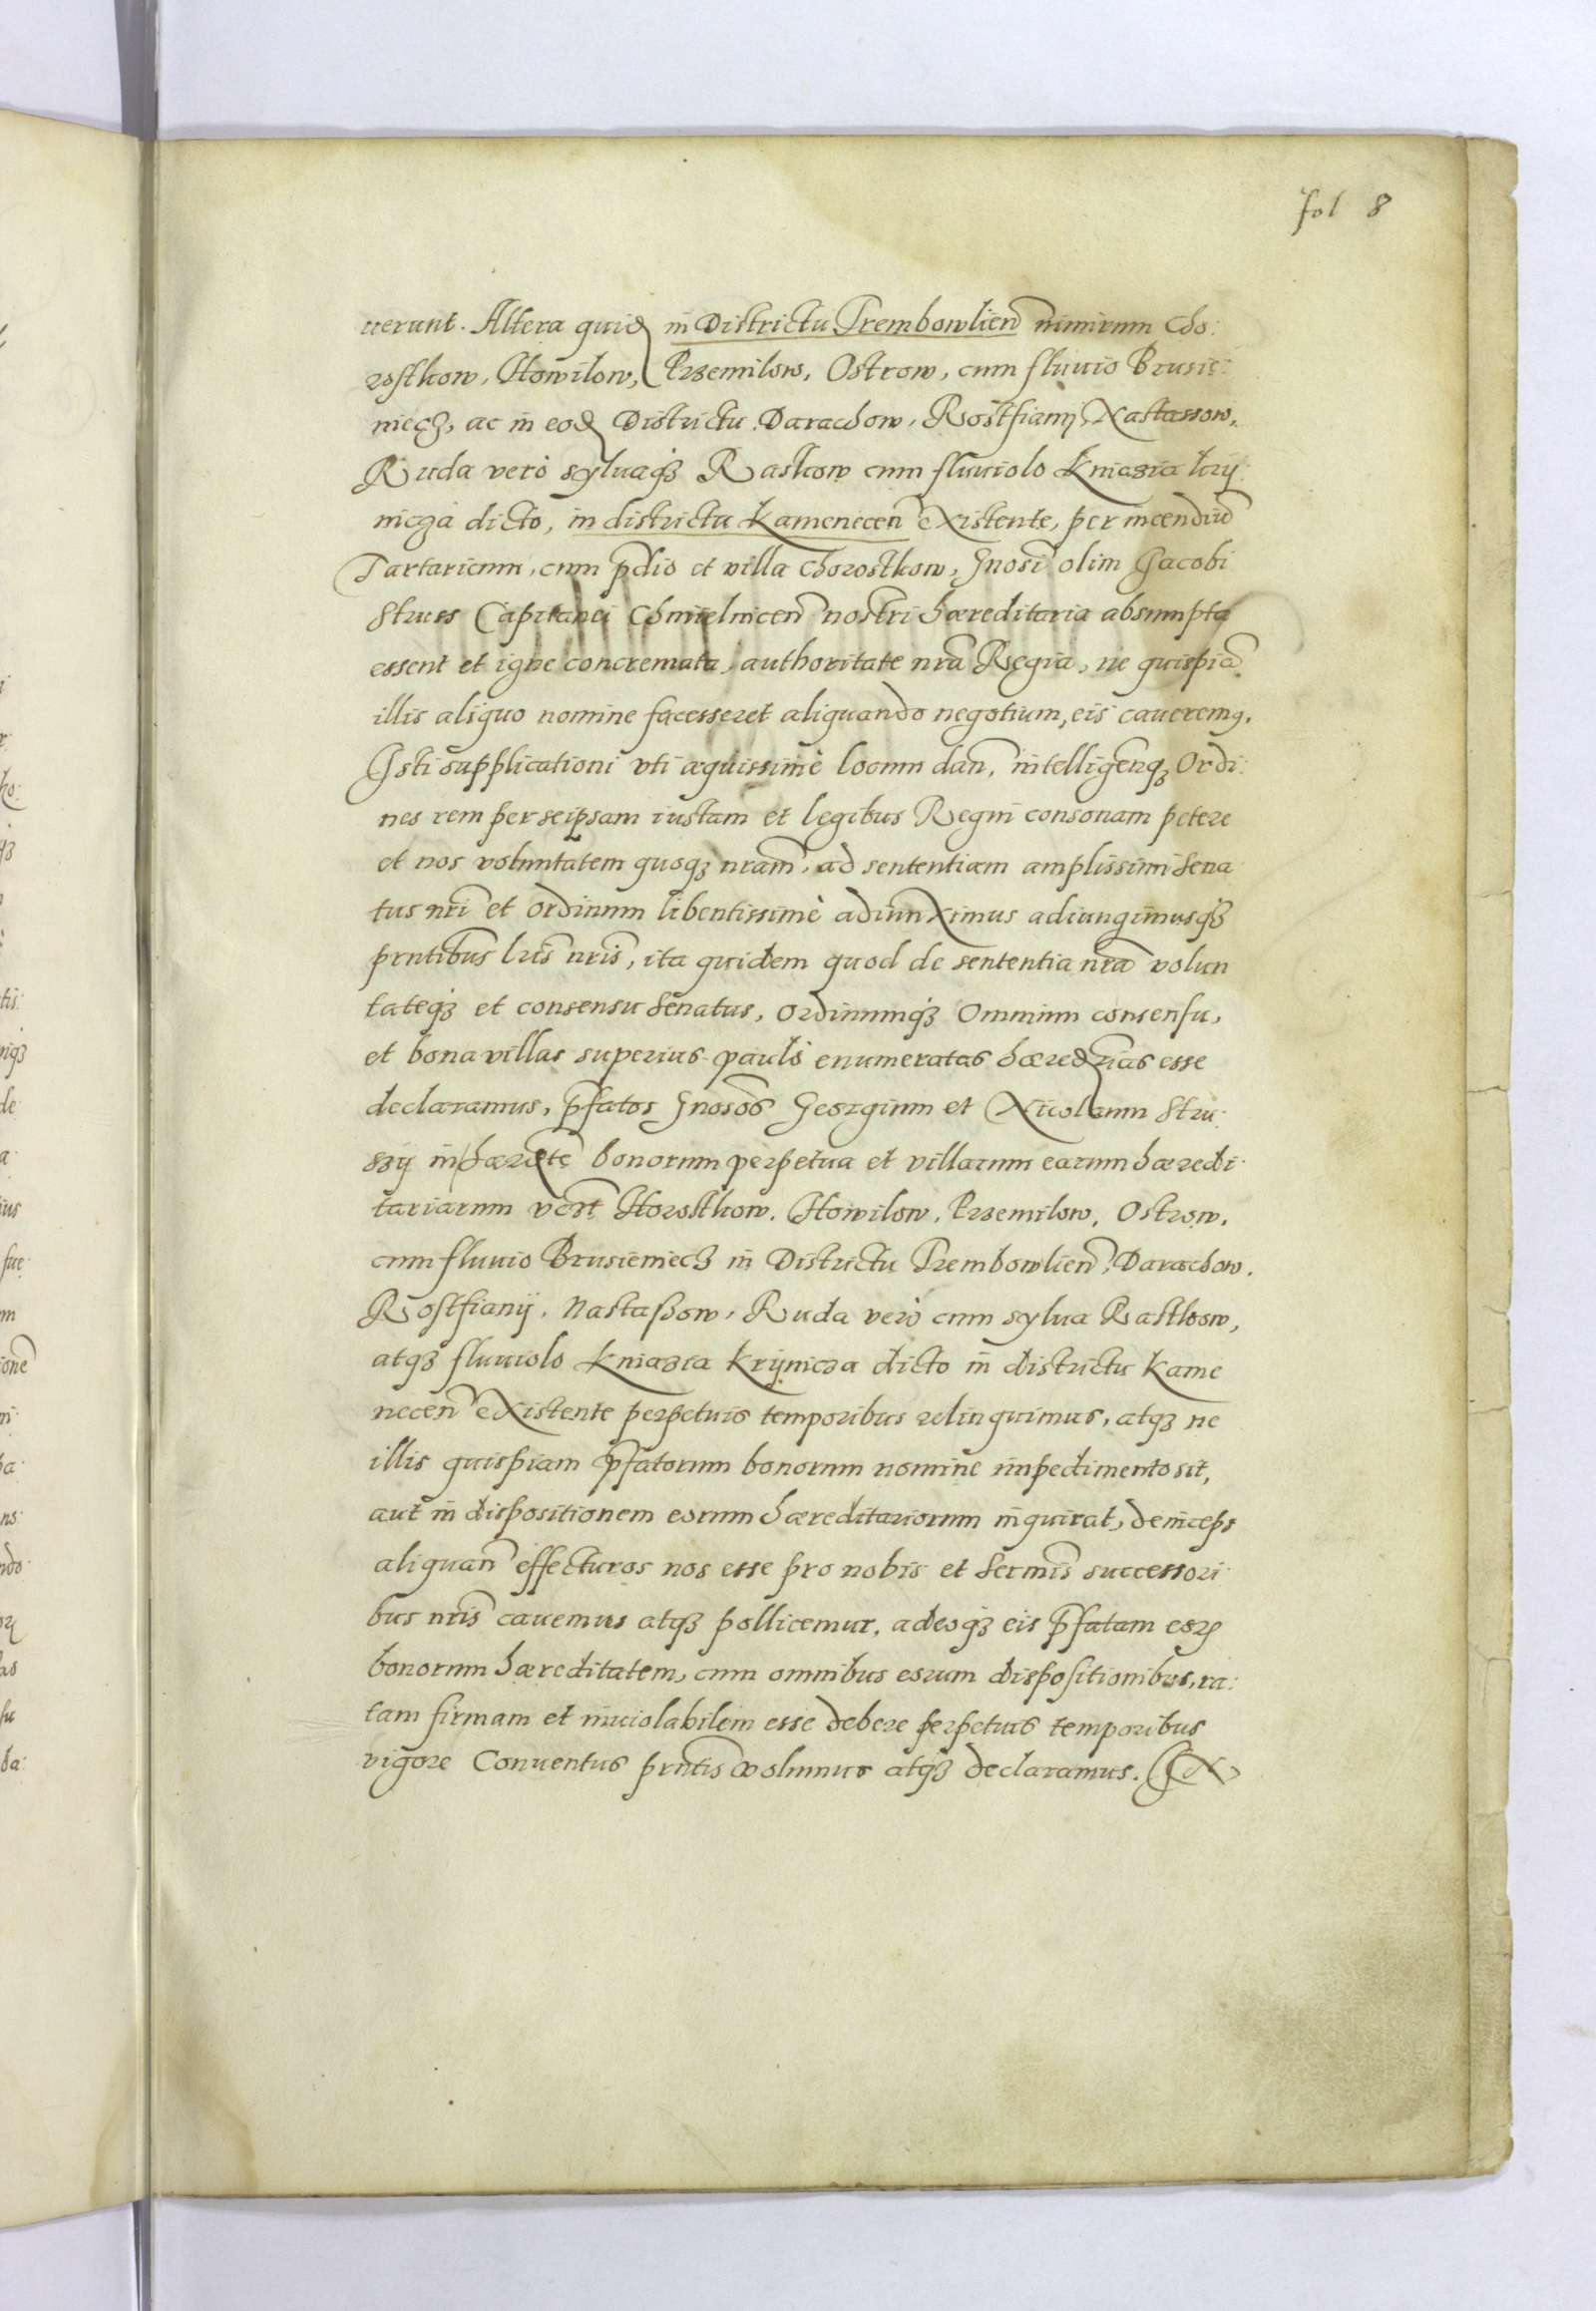 fol 8
uerunt. Altera quid in Districtu Trembowlien nimirum Cho:
rostkow, Howilow, Przemilow, Ostrow, cum fluuio Brusie:
niecz, ac in eod Districtu Darachow, Rostfianij, Nastassow,
Ruda verò syluaqz Rastow cum fluuiolo Kniazia krij:
nicza dicto, in districtu Kamenecen existente, per incendiū
Tartaricum, cum pdio et villa Chorostkow, Gnosi olim Jacobi
Struss Capitanei Chmielnicen nostri hæreditaria absumpta
essent et igne concremata, authoritate nrā Regia, ne quispiā
illis aliquo nomine facesseret aliquando negotium, eis caueremꝰ.
Isti supplicationi vti æquissimè locum dan, intelligenqz Ordi:
nes rem per seipsam iustam et legibus Regni consonam petere
et nos voluntatem quoqz nram, ad sententiam amplissimi Sena
tus nri et ordinum libentissimè adiunximus adiungimusqz
prntibus lris nris, ita quidem quod de sententia nrā volun
tateqz et consensu Senatus, ordinumqz omnium consensu,
et bona villas superius paulò enumeratas hæredrias esse
declaramus, pfatos Gnosos Georgium et Nicolaum Stru:
ssij in hæredte bonorum perpetua et villarum earum hæredi
tariarum vdlt Horostkow. Howilow. Przemilow, Ostrow,
cum fluuio Brusieniecz in Districtu Trembowlien, Darachow.
Rostfianij. Nastaßow, Ruda verò cum sylua Rastkow,
atqz fluuiolo Kniazia Krijnicza dicto in districtu Kame
necen existente perpetuis temporibus relinquimus, atqz ne
illis quispiam pfatorum bonorum nomine impedimento sit,
aut in dispositionem eorum hæreditariorum inquirat, deinceps
aliquan effecturos nos esse pro nobis et Sermis successori
bus nris cauemus atqz pollicemur, adeoqz eis pfatam eorꝝ
bonorum hæreditatem, cum omnibus eorum dispositionibus, ra:
tam firmam et inuiolabilem esse debere perpetuis temporibus
vigore Conuentus prntis volumus atqz declaramus. IN